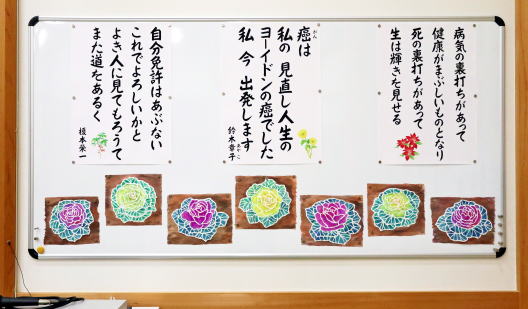 病気の裏打ちがあって
健康がまぶしいものとなり
死の裏打ちがあって
生は輝きを見せる
癌は
がん
私の 見直し人生の
ヨーイドンの癌でした
私 今 出発します
鈴木章子
あやこ
自分免許はあぶない
これでよろしいかと
よき人に見てもろうて
また道をあるく
榎本栄一